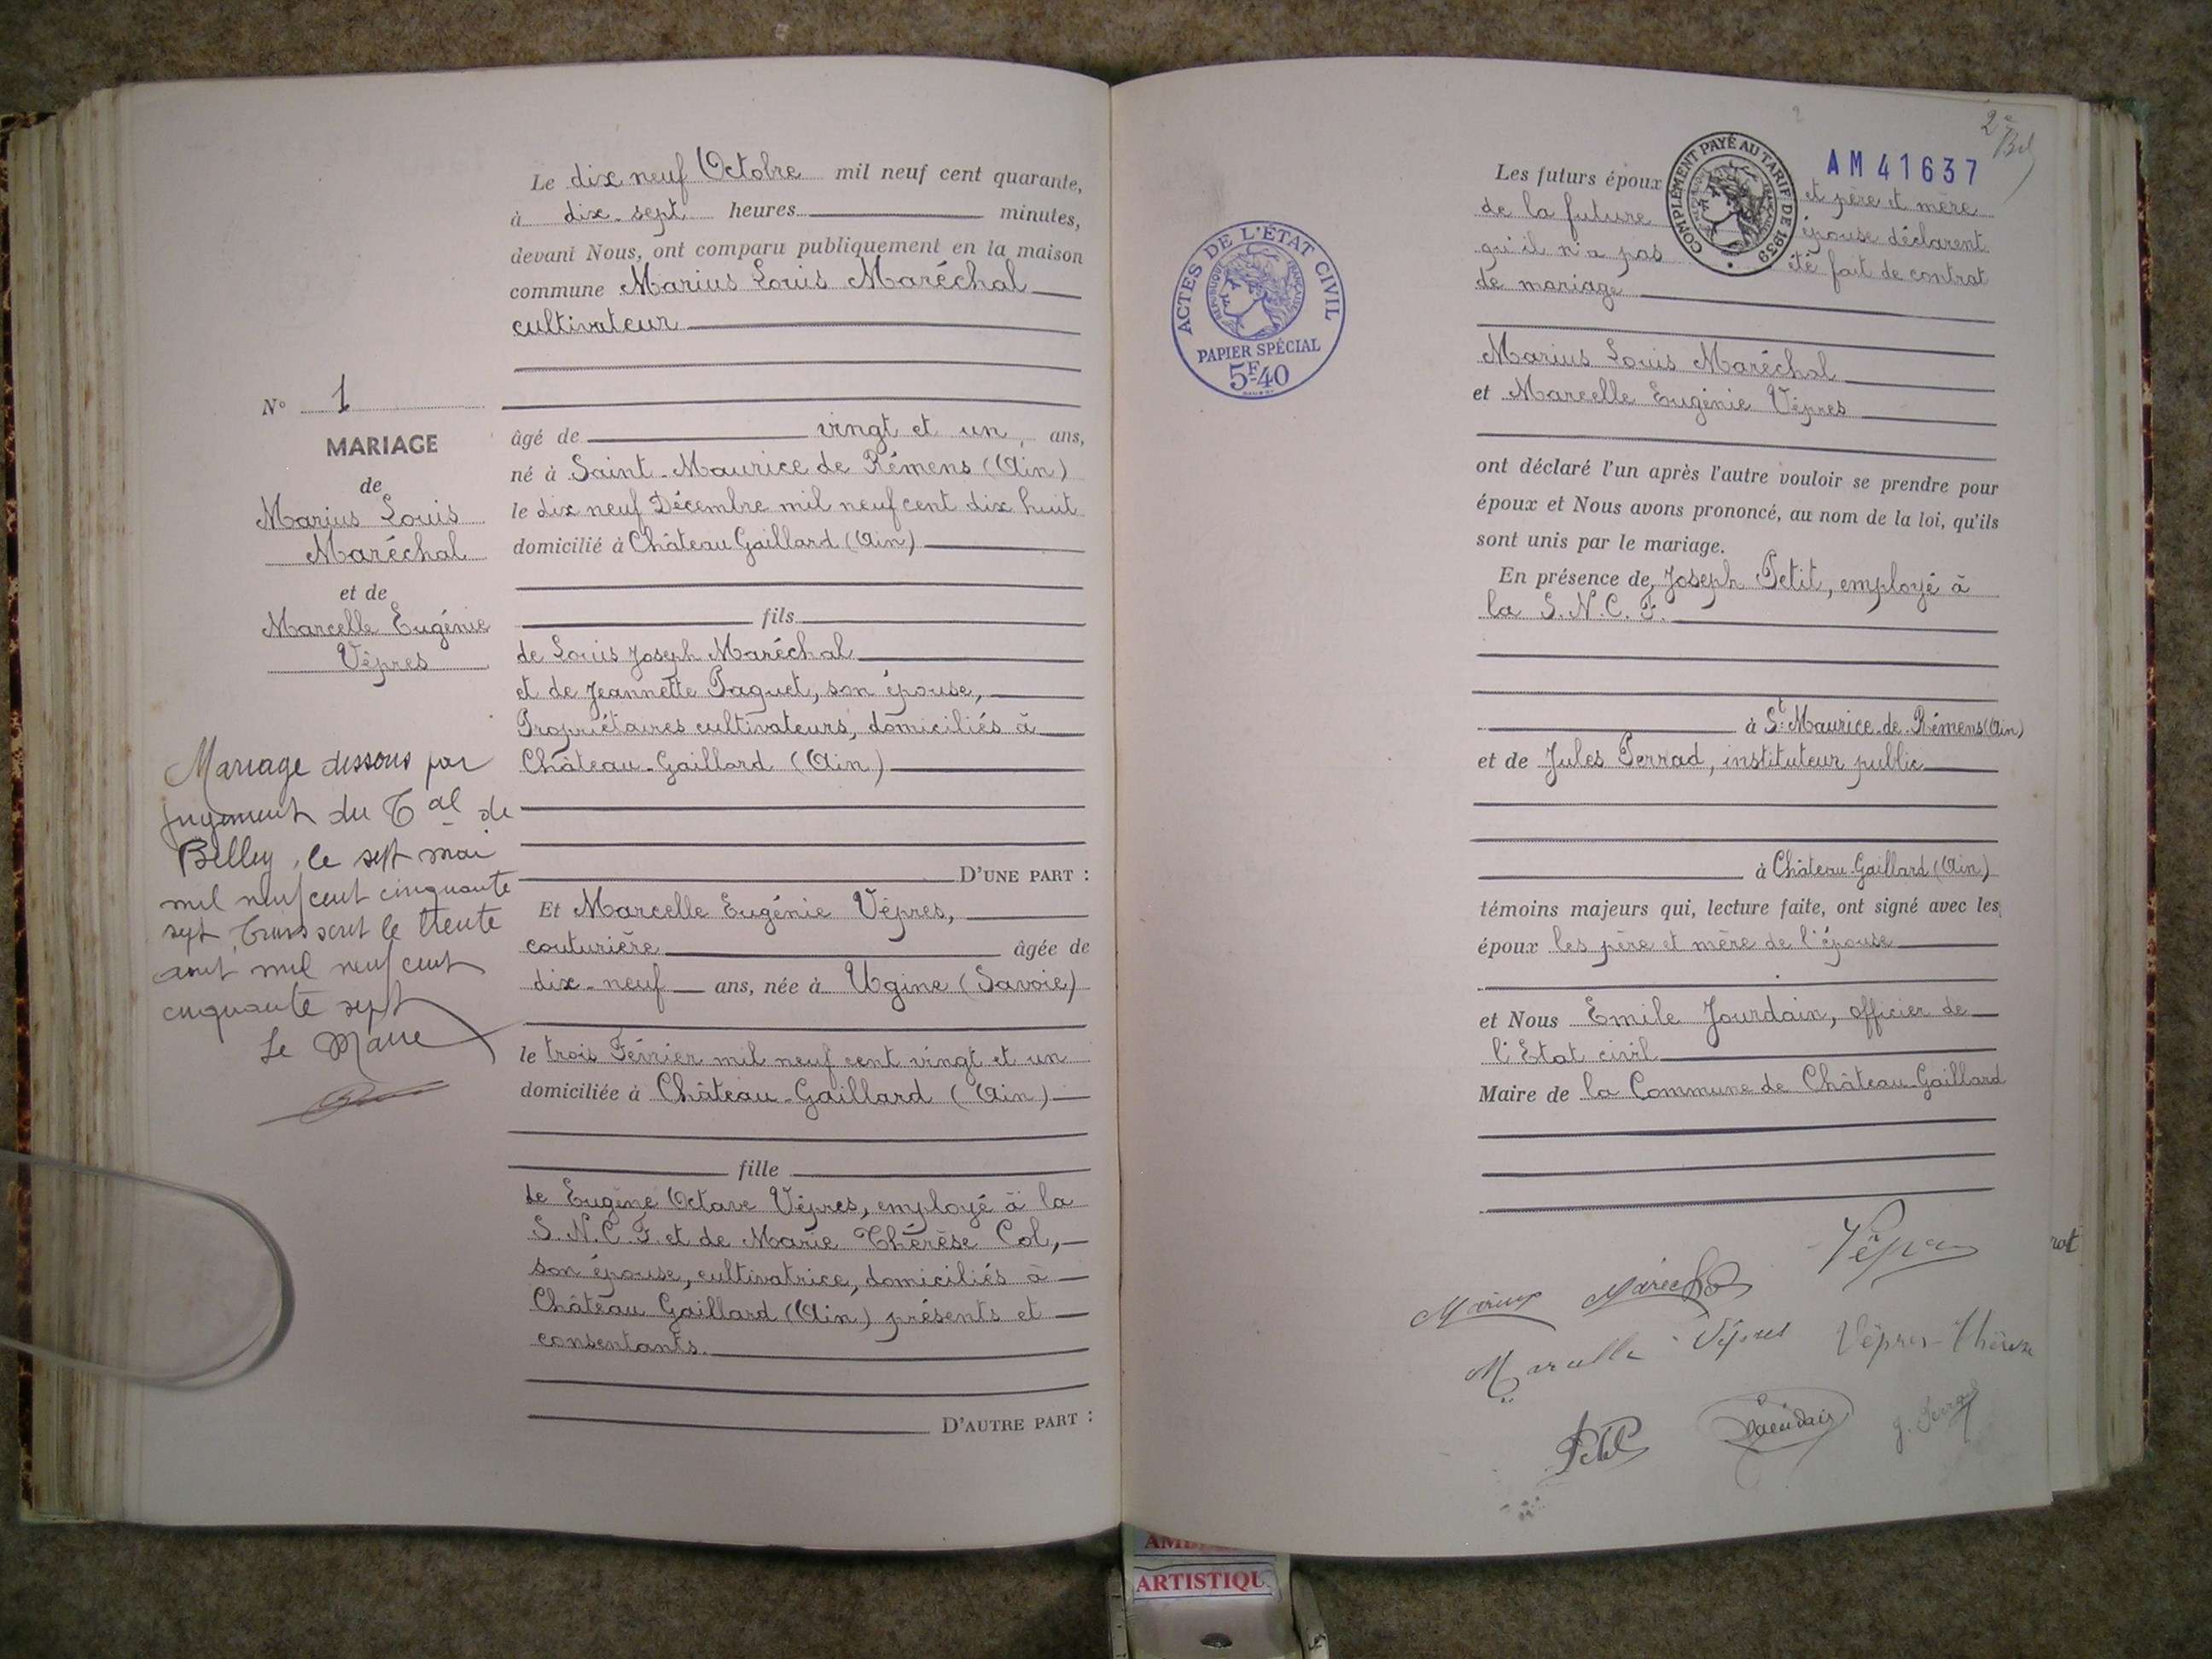 N° 1
MARIAGE
de
Marius Louis
Maréchal
et de
Marcelle Eugénie
Vêpres
Mariage dissous par
jugement du Tal de
Belley, le sept mai
mil neuf cent cinquante
sept. Transcrit le trente
aout mil neuf cent
cinquante sept
Le Maire
Le dix neuf Octobre mil neuf cent quarante,
à dix-sept heures minutes,
devant Nous, ont comparu publiquement en la maison
commune Marius Louis Maréchal
cultivateur
âgé de vingt et un ans,
né à Saint-Maurice de Rémens (Ain)
le dix neuf Décembre mil neuf cent dix huit
domicilié à Château Gaillard (Ain)
fils
de Louis Joseph Maréchal
et de Jeannette Paquet, son épouse,
Propriétaires cultivateurs, domiciliés à
Château-Gaillard (Ain)
D'UNE PART :
Et Marcelle Eugénie Vêpres,
couturière âgée de
dix-neuf ans, née à Ugine (Savoie)
le trois Février mil neuf cent vingt et un
domiciliée à Château-Gaillard (Ain)
fille
de Eugène Octave Vêpres, employé à la
S.N.C.F. et de Marie Thérèse Col,
son épouse, cultivatrice, domiciliés à
Château Gaillard (Ain) présents et
consentants.
D'AUTRE PART :
ACTES DE L'ÉTAT CIVIL
RÉPUBLIQUE FRANÇAISE
PAPIER SPÉCIAL
5F.40
2e
AM 41637
COMPLÉMENT PAYÉ AU TARIF DE 1939
Les futurs époux et père et mère
de la future épouse déclarent
qu'il n'a pas été fait de contrat
de mariage
Marius Louis Maréchal
et Marcelle Eugénie Vêpres
ont déclaré l'un après l'autre vouloir se prendre pour
époux et Nous avons prononcé, au nom de la loi, qu'ils
sont unis par le mariage.
En présence de Joseph Petit, employé à
la S.N.C.F.
à St Maurice-de-Rémens (Ain)
et de Jules Perrad, instituteur public
à Château-Gaillard (Ain)
témoins majeurs qui, lecture faite, ont signé avec les
époux les père et mère de l'épouse
et Nous Emile Jourdain, officier de
l'Etat civil
Maire de la Commune de Château-Gaillard
Vêpres
Marius Maréchal
Marcelle Vêpres Vêpres Thérèse
Petit Jourdain J. Perrad
ARTISTIQU